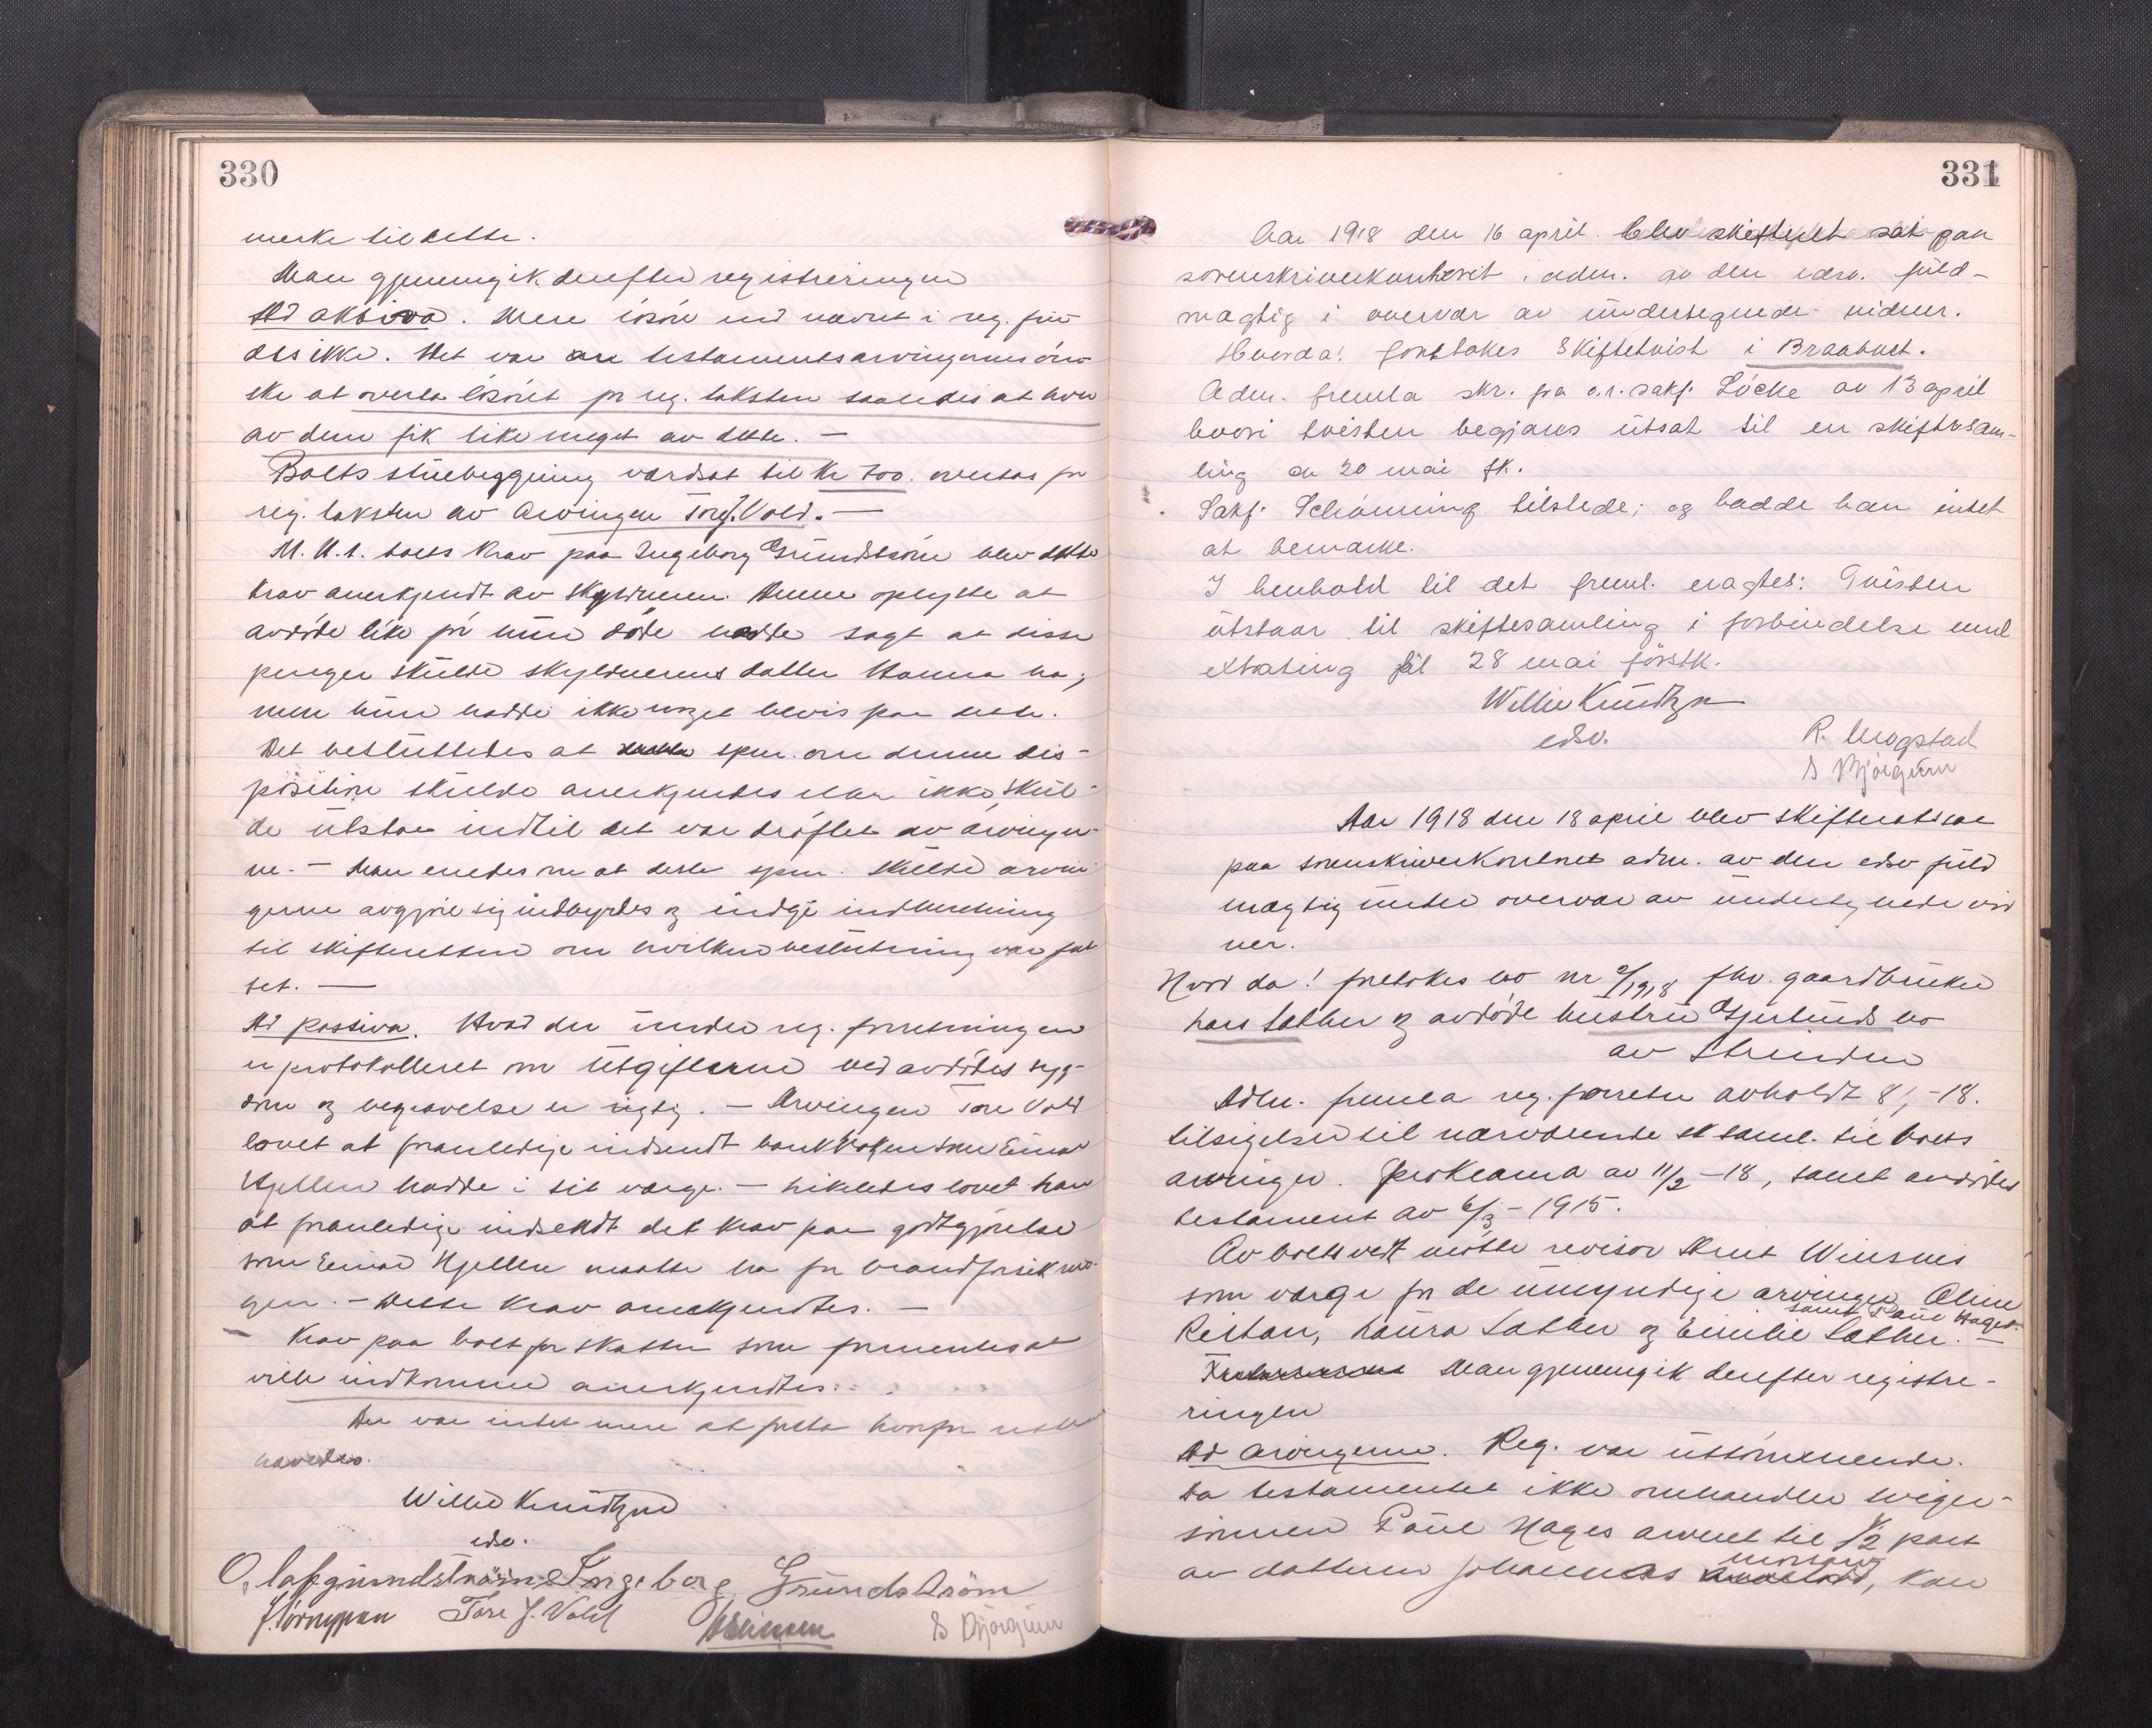 330
merke til dette.
Man gjennemgik derefter registreringen
Ad aktiva. Mere løsøre end nævnt i reg. fin-
des ikke. Det var testamentsarvingernes øn-
ske at overta løsøret pr reg. taksten saaledes at hver
av dem fik like meget av dette. —
Boets stuebygning værdsat til Kr 700. overtas for
reg. taksten av Arvingen Tore J. Vold. —
M. H. t. boets krav paa Ingeborg Grundstrøm blev dette
krav anerkjendt av skyldneren. Denne oplyste at
avdøde like før hun døde hadde sagt at disse
penger skulde skyldnerens datter Hanna ha;
men hun hadde ikke noget bevis paa dette.
Det besluttedes at spm. om denne dis-
position skulde anerkjendes eller ikke, skul-
de utstaa indtil det var drøftet av arvinger-
ne. — Man enedes om at dette spm. skulde arvin-
gerne avgjøre sig indbyrdes og indgi indberetning
til skifteretten om hvilken beslutning var fat-
tet. —
Ad passiva. Hvad der under reg. forretningen
er protokolleret om utgifterne ved avdødes syg-
dom og begravelse er rigtig. — Arvingen Tore Vold
lovet at foranledige indsendt bankboken som Einar
Hjellen hadde i sit værge. — Likeledes lovet han
at foranledige indsendt det krav paa godtgjørelse
som Einar Hjellen maatte ha for brandforsikrin-
gen. — Dette krav anerkjendtes. —
Krav paa boet for skatter som formentes at
ville indkomme anerkjendtes.
Der var intet mere at foreta hvorfor retten
hævedes.
Willie Knudtzon
edsv.
Olaf Grundström Ingeborg Grundström
Tore J. Vold
S Bjørgum
331
Aar 1918 den 16 april blev skifteret sat paa
sorenskriverkontoret, adm. av den edsv. fuld-
mægtig i overvær av undertegnede vidner.
Hvorda! foretokes Skiftetvist i Braabust.
Adm. fremla skr. fra o.r.sakf. Løcke av 13 april
hvori tvisten begjæres utsat til en skiftesam-
ling av 20 mai fk.
Sakf. Schønning tilstede; og hadde han intet
at bemærke.
I henhold til det freml. eragtes: Tvisten
utstaar til skiftesamling i forbindelse med
extrating til 28 mai førstk.
Willie Knudtzon
edsv.
R. Mogstad
S Bjørgum
Aar 1918 den 18 april blev skifteret sat
paa sorenskriverkontoret adm. av den edsv fuld
mægtig under overvær av undertegnede vid
ner.
Hvor da! foretokes bo nr 2/1918 fhv. gaardbruker
Lars Sæther og avdøde hustru Gjertruds bo
av Strinden
Adm. fremla reg. forretn avholdt 8/1-18.
tilsigelser til nærværende sk saml. til boets
arvinger. Proklama av 11/2-18, samt avdødes
testament av 6/3-1915.
Av boets vedk møtte revisor Arnt Winsnes
som værge for de umyndige arvinger Aline
samt Paul Hages.
Reitan, Laura Sæther og Emilie Sæther. —
Man gjennemgik derefter registre-
ringen
Ad arvingerne. Reg. var uttømmende.
Da testamentet ikke omhandler sviger-
sønnen Paul Hages arveret til 1/2 part
morsarv
av datteren Johannas , kan